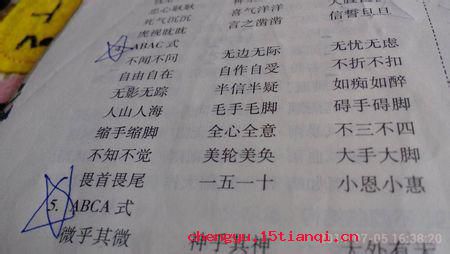 忠心耿耿
死气沉沉 喜气洋洋 信誓旦旦
虎视眈眈 言之凿凿
ABAC 式
不闻不问 无边无际 无忧无虑
自由自在 自作自受 不折不扣
无影无踪 半信半疑 如痴如醉
人山人海 毛手毛脚 碍手碍脚
缩手缩脚 全心全意 不三不四
不知不觉 美轮美奂 大手大脚
畏首畏尾 一五一十 小恩小惠
5. ABCA 式
微乎其微 神乎其神 天外有天
chengyu.15tianqi.cn
07-05 16:38:20